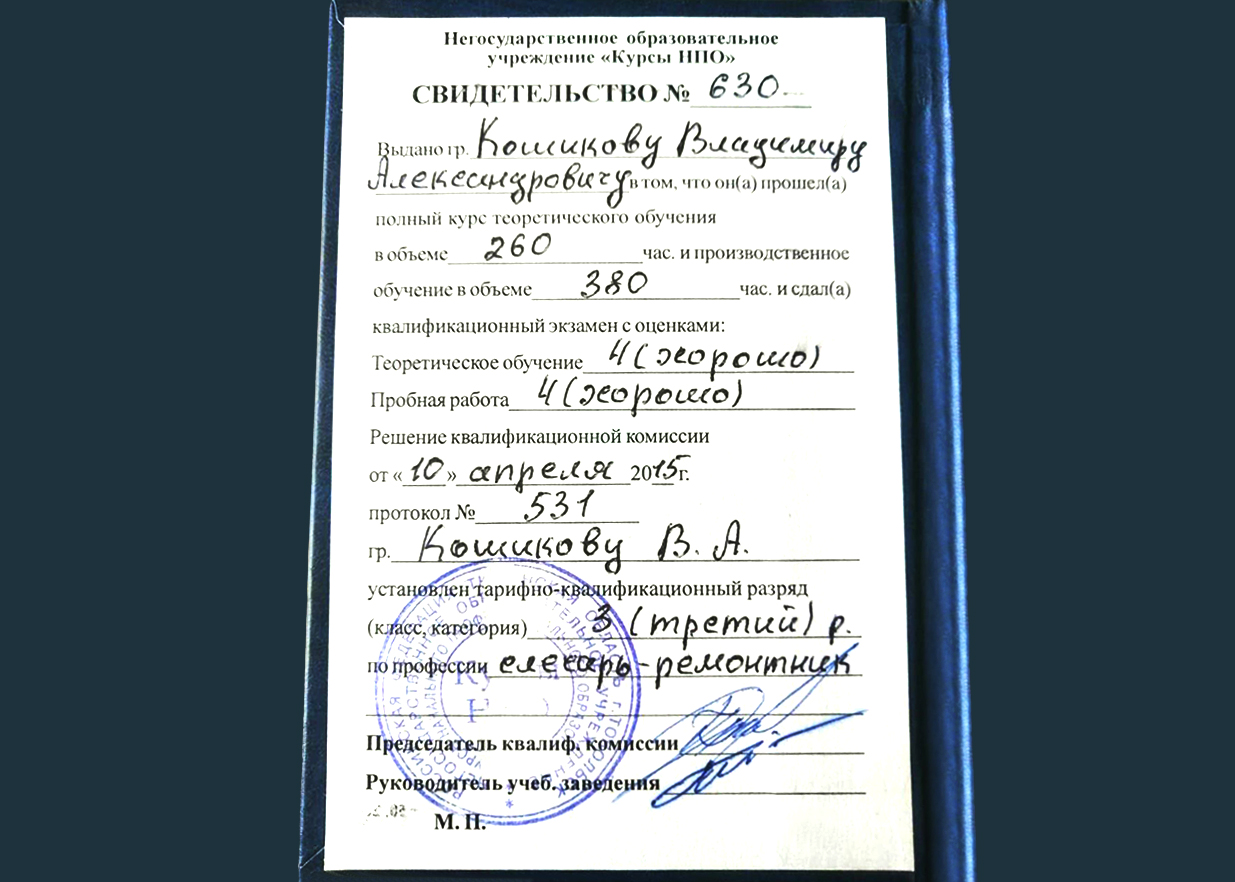 Негосударственное образовательное
учреждение «Курсы НПО»
СВИДЕТЕЛЬСТВО № 630
Выдано гр. Кошикову Владимиру
Александровичу в том, что он(а) прошел(а)
полный курс теоретического обучения
в объеме 260 час. и производственное
обучение в объеме 380 час. и сдал(а)
квалификационный экзамен с оценками:
Теоретическое обучение 4 (хорошо)
Пробная работа 4 (хорошо)
Решение квалификационной комиссии
от «10» апреля 2015г.
протокол № 531
гр. Кошикову В. А.
установлен тарифно-квалификационный разряд
(класс, категория) 3 (третий) р.
по профессии слесарь-ремонтник
Председатель квалиф. комиссии
Руководитель учеб. заведения
М. П.